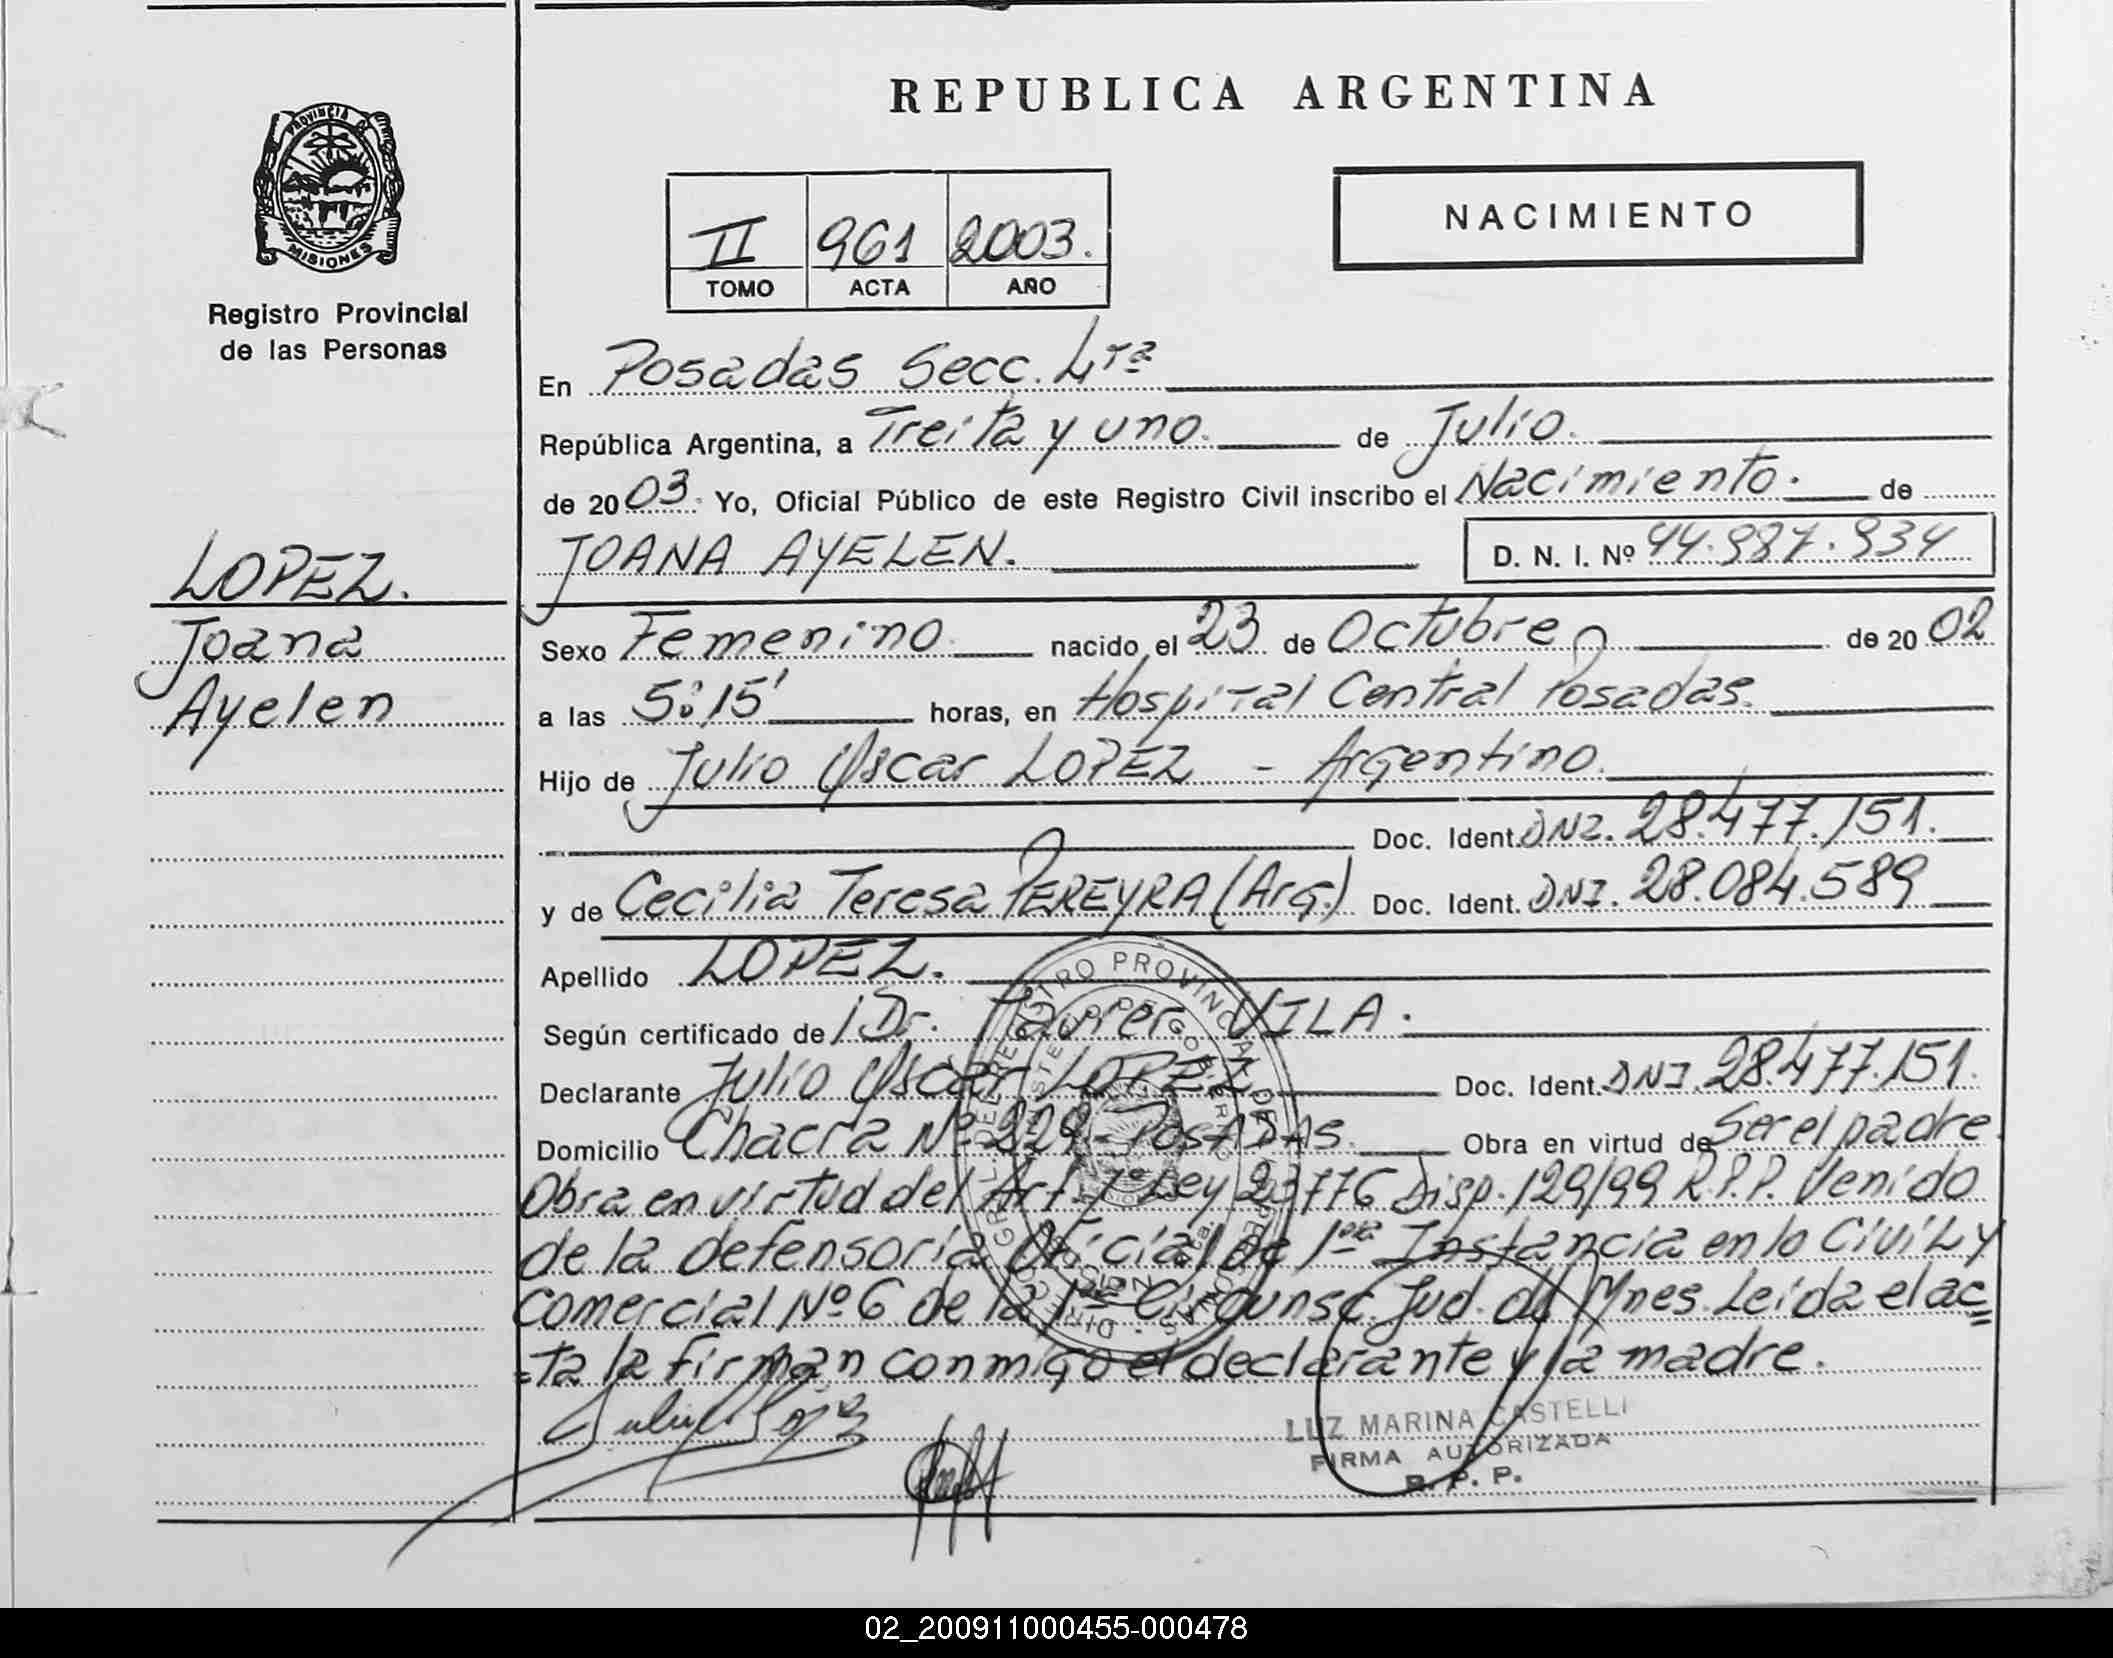 REPUBLICA ARGENTINA
PROVINCIA DE
MISIONES
Registro Provincial
de las Personas
NACIMIENTO
II 961 2003.
TOMO ACTA AÑO
En Posadas Secc. 4ta
República Argentina, a Treita y uno. de Julio.
de 2003. Yo, Oficial Público de este Registro Civil inscribo el Nacimiento. de
JOANA AYELEN. D. N. I. Nº 44.987.934
LOPEZ.
Joana
Ayelen
Sexo Femenino. nacido el 23 de Octubre de 2002
a las 5:15' horas, en Hospital Central Posadas.
Hijo de Julio Oscar LOPEZ - Argentino.
Doc. Ident. DNI. 28.477.151.
y de Cecilia Teresa PEREYRA (Arg.) Doc. Ident. DNI. 28.084.589
Apellido LOPEZ.
Según certificado de Dr. VILA.
Declarante Julio Oscar LOPEZ Doc. Ident. DNI 28.477.151.
Domicilio Chacra Nº 229 - POSADAS. Obra en virtud de Ser el padre.
Obra en virtud del Art. 1º Ley 23776 Disp. 129/99 R.P.P. Venido
de la defensoría Oficial de 1ra Instancia en lo Civil y
Comercial Nº 6 de la 1ra Circunsc. Jud. de Mnes. Leida el ac=
=ta la firman conmigo el declarante y la madre.
LUZ MARINA CASTELLI
FIRMA AUTORIZADA
R. P. P.
02_200911000455-000478